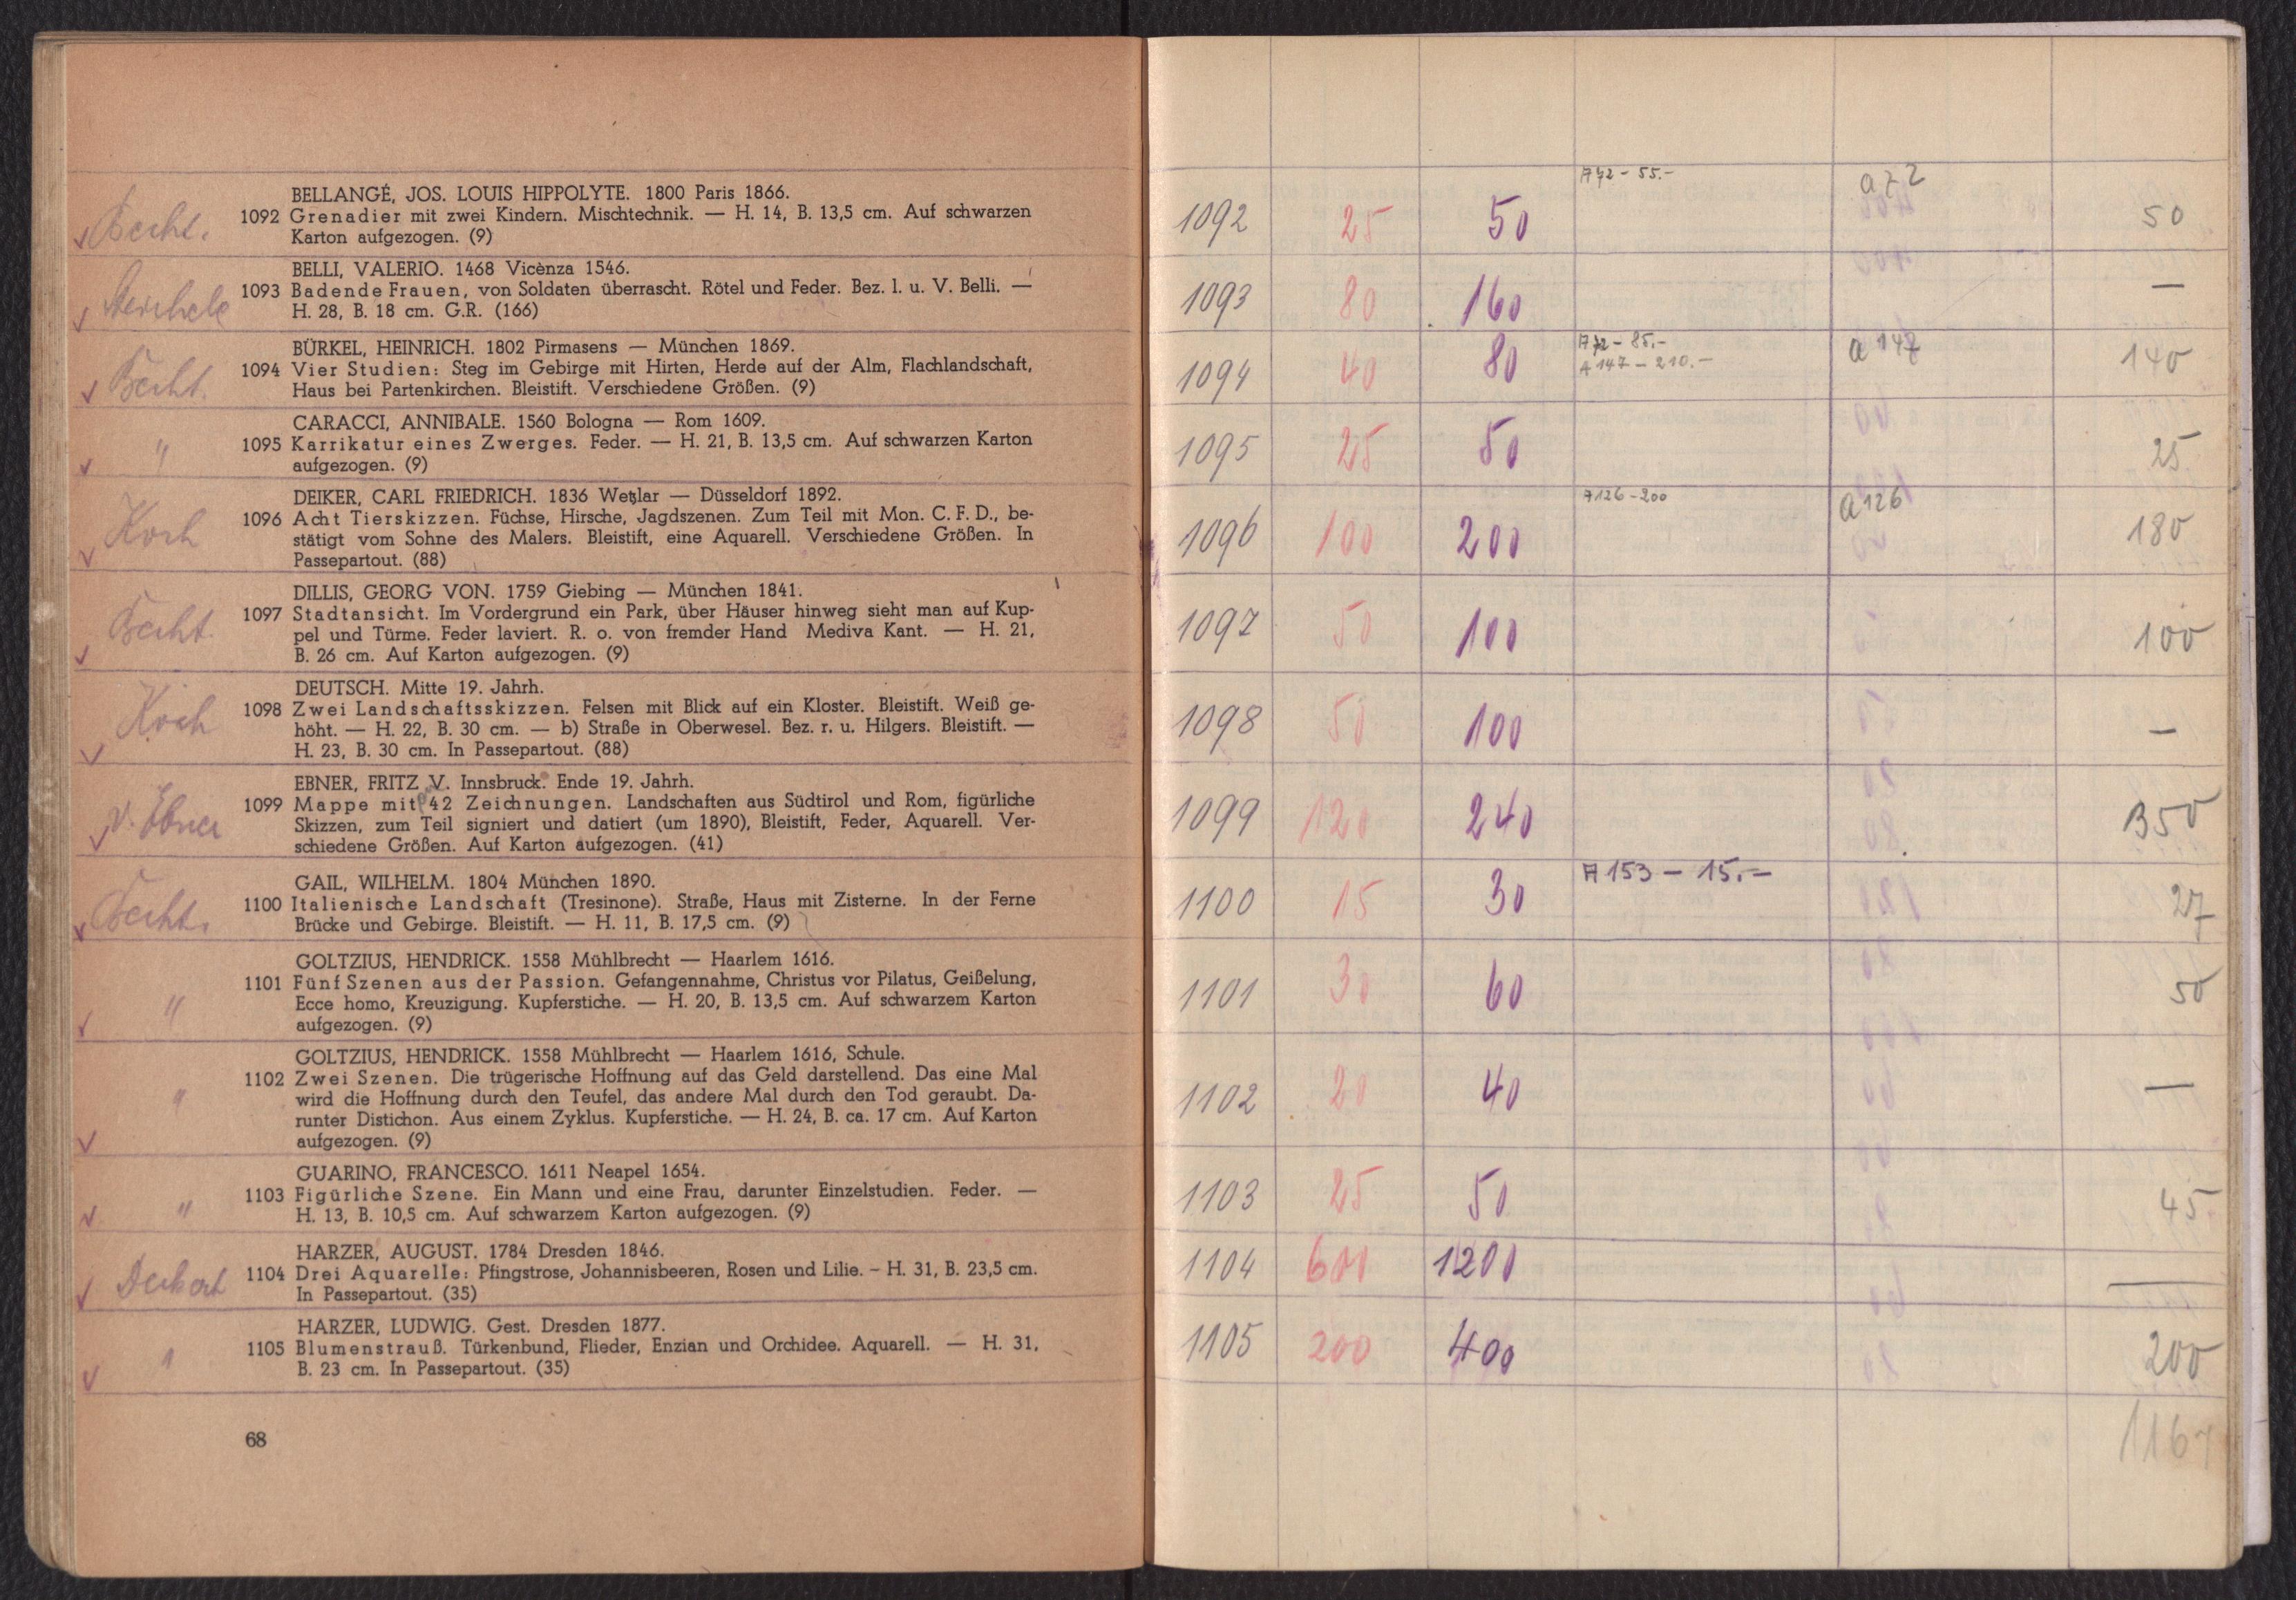 BELLANGÉ, JOS. LOUIS HIPPOLYTE. 1800 Paris 1866.
1092 Grenadier mit zwei Kindern. Mischtechnik. — H. 14, B. 13,5 cm. Auf schwarzen
Karton aufgezogen. (9)
BELLI, VALERIO. 1468 Vicènza 1546.
1093 Badende Frauen, von Soldaten überrascht. Rötel und Feder. Bez. l. u. V. Belli. —
H. 28, B. 18 cm. G.R. (166)
BÜRKEL, HEINRICH. 1802 Pirmasens — München 1869.
1094 Vier Studien: Steg im Gebirge mit Hirten, Herde auf der Alm, Flachlandschaft,
Haus bei Partenkirchen. Bleistift. Verschiedene Größen. (9)
CARACCI, ANNIBALE. 1560 Bologna — Rom 1609.
" 1095 Karrikatur eines Zwerges. Feder. — H. 21, B. 13,5 cm. Auf schwarzen Karton
aufgezogen. (9)
DEIKER, CARL FRIEDRICH. 1836 Wetzlar — Düsseldorf 1892.
Koch 1096 Acht Tierskizzen. Füchse, Hirsche, Jagdszenen. Zum Teil mit Mon. C. F. D., be-
stätigt vom Sohne des Malers. Bleistift, eine Aquarell. Verschiedene Größen. In
Passepartout. (88)
DILLIS, GEORG VON. 1759 Giebing — München 1841.
1097 Stadtansicht. Im Vordergrund ein Park, über Häuser hinweg sieht man auf Kup-
pel und Türme. Feder laviert. R. o. von fremder Hand Mediva Kant. — H. 21,
B. 26 cm. Auf Karton aufgezogen. (9)
DEUTSCH. Mitte 19. Jahrh.
Koch 1098 Zwei Landschaftsskizzen. Felsen mit Blick auf ein Kloster. Bleistift. Weiß ge-
höht. — H. 22, B. 30 cm. — b) Straße in Oberwesel. Bez. r. u. Hilgers. Bleistift. —
H. 23, B. 30 cm. In Passepartout. (88)
EBNER, FRITZ V. Innsbruck. Ende 19. Jahrh.
v. Ebner 1099 Mappe mit 42 Zeichnungen. Landschaften aus Südtirol und Rom, figürliche
Skizzen, zum Teil signiert und datiert (um 1890), Bleistift, Feder, Aquarell. Ver-
schiedene Größen. Auf Karton aufgezogen. (41)
GAIL, WILHELM. 1804 München 1890.
1100 Italienische Landschaft (Tresinone). Straße, Haus mit Zisterne. In der Ferne
Brücke und Gebirge. Bleistift. — H. 11, B. 17,5 cm. (9)
GOLTZIUS, HENDRICK. 1558 Mühlbrecht — Haarlem 1616.
" 1101 Fünf Szenen aus der Passion. Gefangennahme, Christus vor Pilatus, Geißelung,
Ecce homo, Kreuzigung. Kupferstiche. — H. 20, B. 13,5 cm. Auf schwarzem Karton
aufgezogen. (9)
GOLTZIUS, HENDRICK. 1558 Mühlbrecht — Haarlem 1616, Schule.
" 1102 Zwei Szenen. Die trügerische Hoffnung auf das Geld darstellend. Das eine Mal
wird die Hoffnung durch den Teufel, das andere Mal durch den Tod geraubt. Da-
runter Distichon. Aus einem Zyklus. Kupferstiche. — H. 24, B. ca. 17 cm. Auf Karton
aufgezogen. (9)
GUARINO, FRANCESCO. 1611 Neapel 1654.
" 1103 Figürliche Szene. Ein Mann und eine Frau, darunter Einzelstudien. Feder. —
H. 13, B. 10,5 cm. Auf schwarzem Karton aufgezogen. (9)
HARZER, AUGUST. 1784 Dresden 1846.
1104 Drei Aquarelle: Pfingstrose, Johannisbeeren, Rosen und Lilie. – H. 31, B. 23,5 cm.
In Passepartout. (35)
HARZER, LUDWIG. Gest. Dresden 1877.
" 1105 Blumenstrauß. Türkenbund, Flieder, Enzian und Orchidee. Aquarell. — H. 31,
B. 23 cm. In Passepartout. (35)
68
A 72 – 55.– a 72
1092 25 50 50
1093 80 160 —
A 72 – 85.–
1094 40 80 A 147 – 210.– a 147 140
1095 25 50 25
A 126 – 200 a 126
1096 100 200 180
1097 50 100 100
1098 50 100 —
1099 120 240 350
A 153 – 15.–
1100 15 30 27
1101 30 60 50
1102 20 40 —
1103 25 50 45
1104 600 1200 —
1105 200 400 200
1167